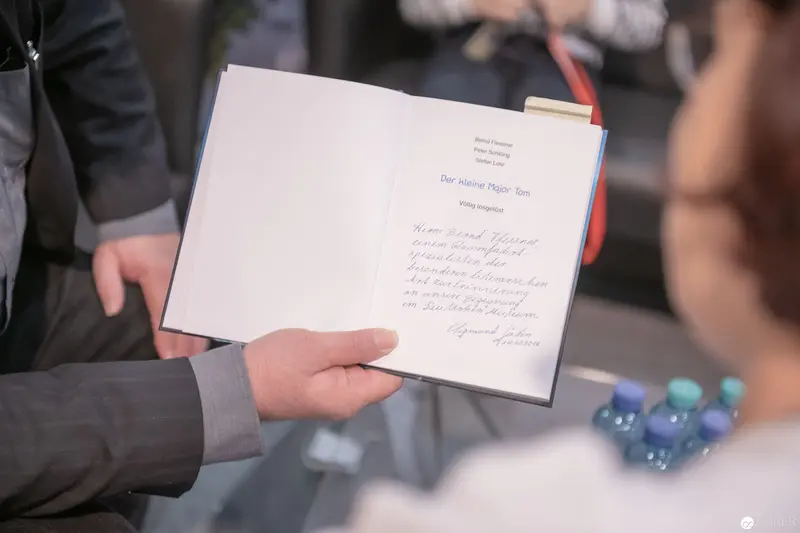 Bernd Flessner
Peter Schilling
Stefan Lohr
Der kleine Major Tom
Völlig losgelöst
Herrn Bernd Flessner
einem Raumfahrt
spezialisten der
besonderen literarischen
Art zur Erinnerung
an unsere Begegnung
im Museum
Sigmund Jähn